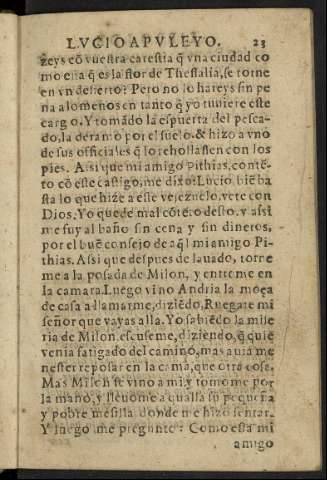 LVCIO APVLEYO. 23
zeys cõ vuestra carestia q̃ vna ciudad co
mo esta q̃ es la flor de Thessalia, se torne
en vn desierto? Pero no lo hareys sin pe
na a lo menos en tanto q̃ yo tuuiere este
cargo. Y tomãdo la espuerta del pesca-
do, la derramo por el suelo. & hizo a vno
de sus officiales q̃ lo rehollassen con los
pies. Assi que mi amigo Pithias, contẽ-
to cõ este castigo, me dixo: Lucio biẽ ba
sta lo que hize a este vejezuelo, vete con
Dios. Yo quede mal cõtẽto desto, y assi
me fuy al baño sin cena y sin dineros,
por el buẽ consejo de aq̃l mi amigo Pi-
thias. Assi que despues de lauado, torne
me a la posada de Milon, y entreme en
la camara. Luego vino Andria la moça
de casa a llamarme, diziẽdo, Ruegate mi
señor que vayas alla. Yo sabiẽdo la mise
ria de Milon, escuseme, diziendo, q̃ quiẽ
venia fatigado del camino, mas auia me
nester reposar en la cama, que otra cosa.
Mas Milon se vino a mi, y tomome por
la mano, y lleuome a qualla su pequeña
y pobre mesilla donde me hizo sentar.
Y luego me pregunte: Como esta mi
amigo